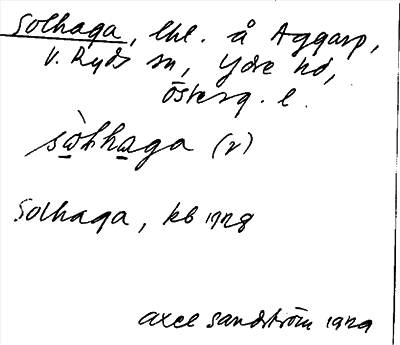 Solhaga, lhl. å Aggarp,
V. Ryds sn, Ydre hd,
Österg. l.
sòlhaga (2)
Solhaga, kb 1928
Axel Sandström 1929